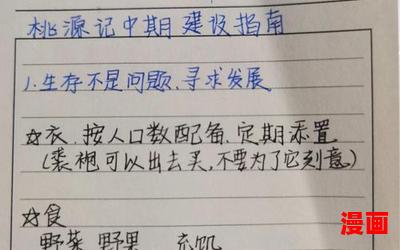 桃源记中期建设指南
1.生存不是问题、寻求发展
☆衣 按人口数配备、定期添置
(裘袍可以出去买,不要为了它刻意)
☆食
野菜 野果 充饥
漫画